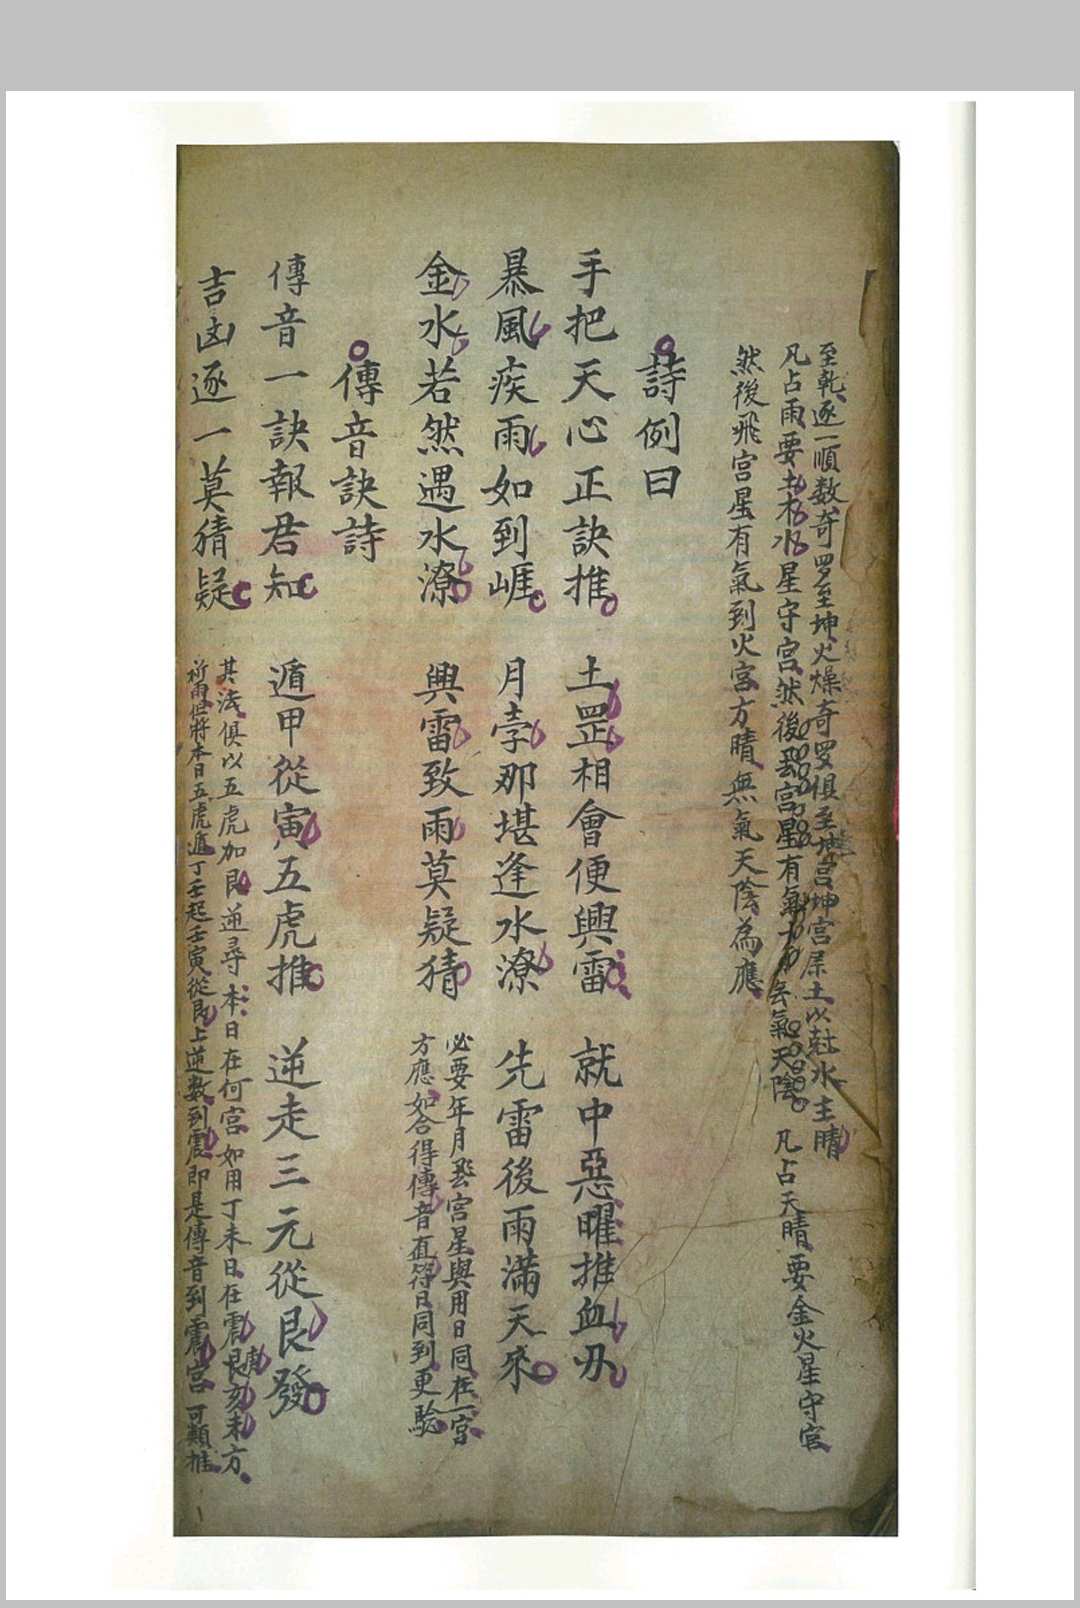 至乾逐一順数奇罗至坤火燥奇罗俱至坤宫坤宫屎土以尅水主晴
凡占雨要土木水星守宫然後飛宫星有氣方雨无氣天陰 凡占天晴要金火星守宫
然後飛宫星有氣到火宫方晴無氣天陰為應
詩例曰
手把天心正訣推 土罡相會便興雷 就中惡曜推血刃
暴風疾雨如到崕 月孛那堪逢水潦 先雷後雨滿天來
金水若然遇水潦 興雷致雨莫疑猜
必要年月飛宫星與用日同在一宫
方應如合得傳音直符日同到更驗
傳音訣詩
傳音一訣報君知 遁甲從寅五虎推 逆走三元從艮發
吉凶逐一莫猜疑
其法俱以五虎加艮逆尋本日在何宫如用丁未日在震艮亥未方
祈雨但將本日五虎遁丁壬起壬寅從艮上逆数到震即是傳音到震宫可類推